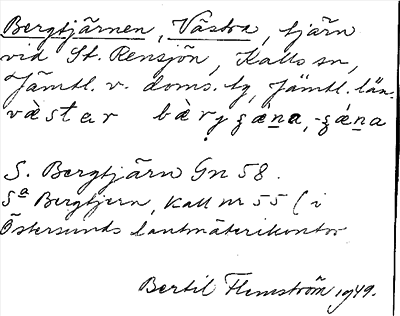 Bergtjärnen, Västra, tjärn
vid St. Rensjön, Kalls sn,
Jämtl. v. doms. tg, Jämtl. län.
vàstar bær̀y ʒæ̀na, -ʒǽna
S. Bergtjärn Gn 58.
Sa Bergtjern, Kall nr 55 (i
Östersunds lantmäterikontor
Bertil Flemström 1949.